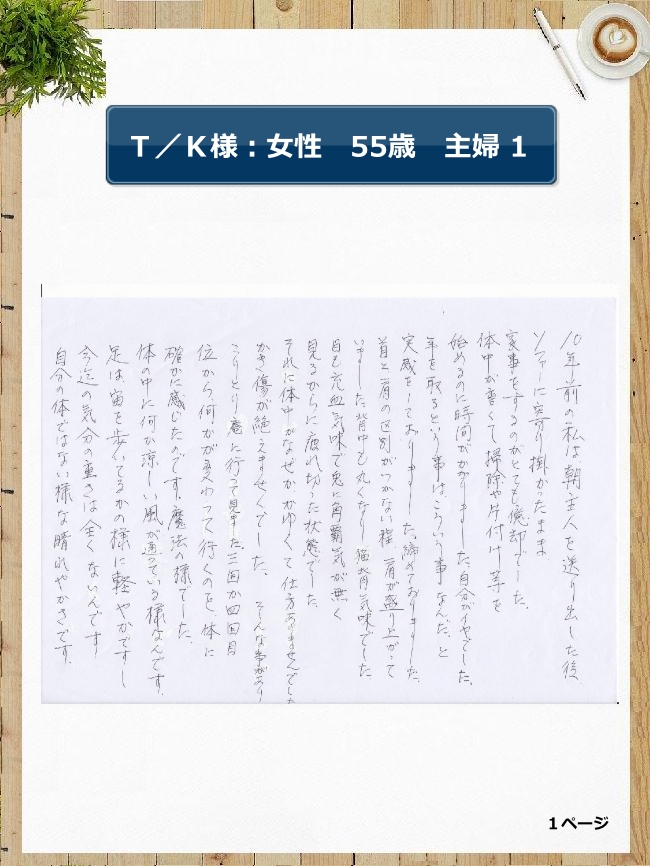 T／K様：女性　55歳　主婦 1
10年前の私は朝主人を送り出した後
ソファーに寄り掛かったまま
家事をするのがとても億却でした。
体中が重くて掃除や片付け等を
始めるのに時間がかかりました。自分がイヤでした。
年を取るという事は、こういう事なんだ、と
実感をしておりました。諦めておりました。
首と肩の区別がつかない程、肩が盛り上がって
いました。背中も丸くなり猫背気味でした。
目も充血気味で兎に角覇気が無く
見るからに疲れ切った状態でした
それに体中がなぜかかゆくて仕方ありませんでした
かき傷が絶えませんでした。そんな事があり
こりとり庵に行って見ました。三回か四回目
位から、何かが変わって行くのを、体に
確かに感じたのです。魔法の様でした。
体の中に何か涼しい風が通っている様なんです。
足は、宙を歩いてるかの様に軽やかですし
今迄の気分の重さは全くないんです！
自分の体ではない様な晴れやかさです。
1ページ